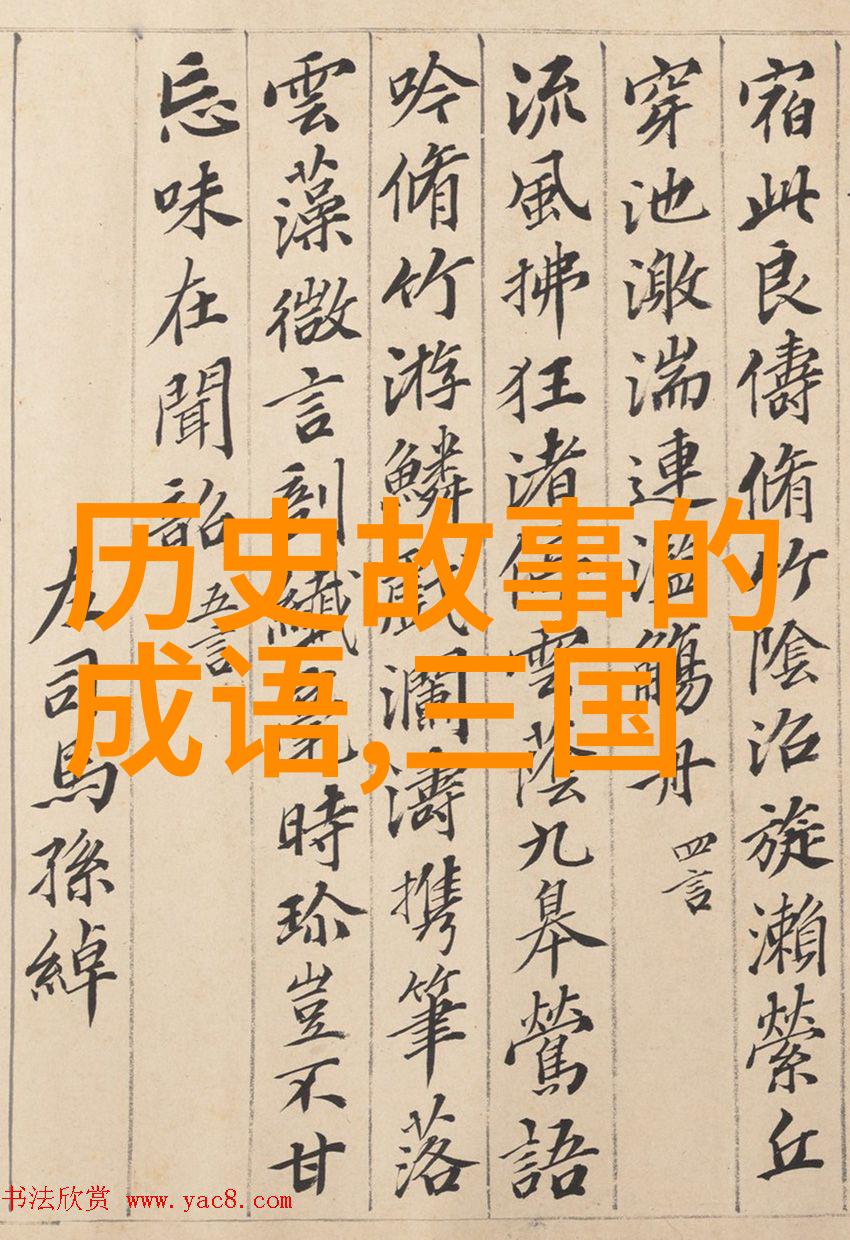 宿此良儔脩竹陰沼旋瀨縈丘
穿池激湍連濫觴舟 四言
流風拂狂渚停雲蔭九皋鶯語
吟脩竹游鱗戲瀾濤携筆落
雲藻微言剖纖毫時珎豈不甘
忘味在聞韶 五言
左司馬孫綽
历史故事的
成语,三国
书法欣赏 www.yac8.com